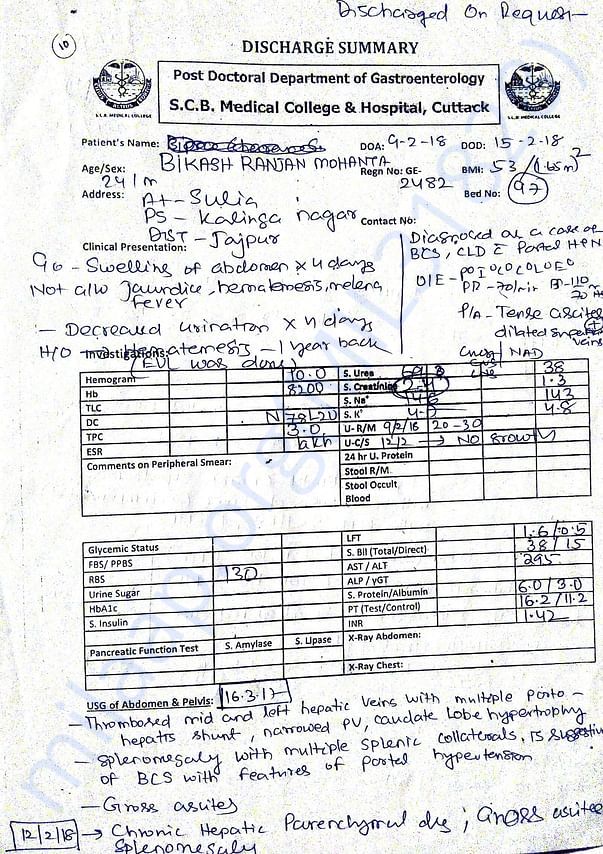 Discharged On Request
10
DISCHARGE SUMMARY
Post Doctoral Department of Gastroenterology
S.C.B. Medical College & Hospital, Cuttack
S.L.B. MEDICAL COLLEGE
S.L.B. MEDICAL COLLEGE
Patient's Name: DOA: 9-2-18 DOD: 15-2-18
BIKASH RANJAN MOHANTA
Age/Sex: 24/m Regn No: GE-2482 BMI: 53/(1.65m)2
Address: At - Sulia Bed No: 97
PS - Kalinga nagar Contact No:
DIST - Jajpur
Clinical Presentation:
C/o - Swelling of abdomen x 4 days
Not a/w Jaundice, hematemesis, melena
fever
- Decreased urination x 4 days
H/O Hematemesis - 1 year back
(EVL was done)
Diagnosed as a case of
BCS, CLD c Portal HTN
O/E -
PR - 70/min BP - 110/70
P/A - Tense ascites
dilated veins
NAD
Investigations:
Hemogram
Hb 10.0
TLC 8200
DC N 78 L 20
TPC 3.0 lakh
ESR
Comments on Peripheral Smear:
S. Urea 38
S. Creatinine 2.4 1.3
S. Na+ 143
S. K+ 4.8
U-R/M 9/2/18 20-30
U-C/S 12/2 → No growth
24 hr U. Protein
Stool R/M
Stool Occult
Blood
Glycemic Status
FBS/ PPBS
RBS 130
Urine Sugar
HbA1c
S. Insulin
Pancreatic Function Test S. Amylase S. Lipase
LFT
S. Bil (Total/Direct) 1.6/0.5
AST / ALT 38/15
ALP / γGT 295
S. Protein/Albumin 6.0/3.0
PT (Test/Control) 16.2/11.2
INR 1.42
X-Ray Abdomen:
X-Ray Chest:
USG of Abdomen & Pelvis: 16.3.17
- Thrombosed mid and left hepatic veins with multiple porto-
hepatic shunt, narrowed PV, caudate lobe hypertrophy
- splenomegaly with multiple splenic collaterals, is suggestive
of BCS with features of portal hypertension
- Gross ascites
12/2/18 → Chronic Hepatic Parenchymal dis; Gross ascites
Splenomegaly
milaap.org